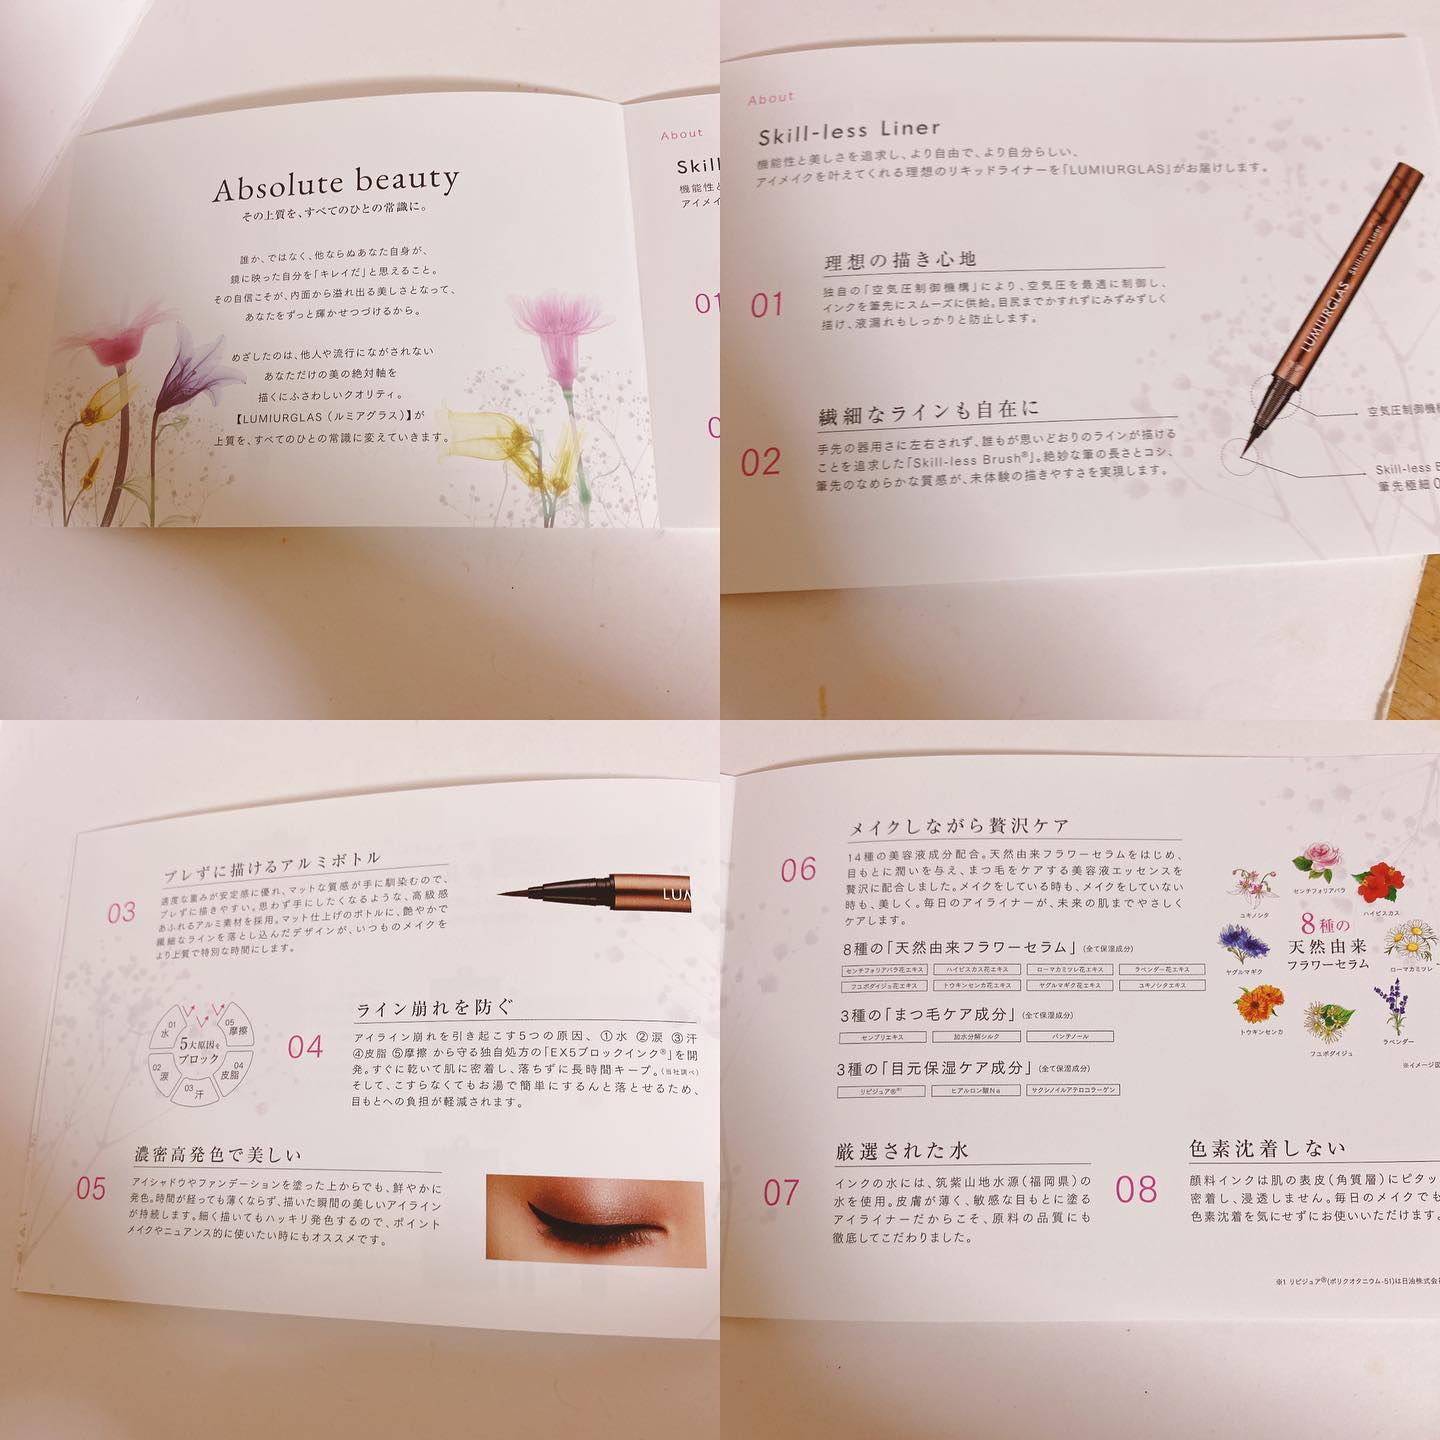 Absolute beauty
その上質を、すべてのひとの常識に。
誰か、ではなく、他ならぬあなた自身が、
鏡に映った自分を「キレイだ」と思えること。
その自信こそが、内面から溢れ出る美しさとなって、
あなたをずっと輝かせつづけるから。
めざしたのは、他人や流行にながされない
あなただけの美の絶対軸を
描くにふさわしいクオリティ。
【LUMIURGLAS（ルミアグラス）】が
上質を、すべてのひとの常識に変えていきます。
About
Skil
機能性と
アイメイ
01
0
About
Skill-less Liner
機能性と美しさを追求し、より自由で、より自分らしい、
アイメイクを叶えてくれる理想のリキッドライナーを「LUMIURGLAS」がお届けします。
01
理想の描き心地
独自の「空気圧制御機構」により、空気圧を最適に制御し、
インクを筆先にスムーズに供給。目尻までかすれずにみずみずしく
描け、液漏れもしっかりと防止します。
02
繊細なラインも自在に
手先の器用さに左右されず、誰もが思いどおりのラインが描ける
ことを追求した「Skill-less Brush®」。絶妙な筆の長さとコシ、
筆先のなめらかな質感が、未体験の描きやすさを実現します。
LUMIURGLAS Skill-less Liner
空気圧制御機
Skill-less B
筆先極細0
03
ブレずに描けるアルミボトル
適度な重みが安定感に優れ、マットな質感が手に馴染むので、
ブレずに描きやすい。思わず手にしたくなるような、高級感
あふれるアルミ素材を採用。マット仕上げのボトルに、艶やかで
繊細なラインを落とし込んだデザインが、いつものメイクを
より上質で特別な時間にします。
LUM
01
水
02
涙
03
汗
04
皮脂
05
摩擦
5大原因を
ブロック
04
ライン崩れを防ぐ
アイライン崩れを引き起こす5つの原因、①水 ②涙 ③汗
④皮脂 ⑤摩擦 から守る独自処方の「EX5ブロックインク®」を開
発。すぐに乾いて肌に密着し、落ちずに長時間キープ。（当社調べ）
そして、こすらなくてもお湯で簡単にするんと落とせるため、
目もとへの負担が軽減されます。
05
濃密高発色で美しい
アイシャドウやファンデーションを塗った上からでも、鮮やかに
発色。時間が経っても薄くならず、描いた瞬間の美しいアイライン
が持続します。細く描いてもハッキリ発色するので、ポイント
メイクやニュアンス的に使いたい時にもオススメです。
06
メイクしながら贅沢ケア
14種の美容液成分配合。天然由来フラワーセラムをはじめ、
目もとに潤いを与え、まつ毛をケアする美容液エッセンスを
贅沢に配合しました。メイクをしている時も、メイクをしていない
時も、美しく。毎日のアイライナーが、未来の肌までやさしく
ケアします。
8種の「天然由来フラワーセラム」（全て保湿成分）
センチフォリアバラ花エキス ハイビスカス花エキス ローマカミツレ花エキス ラベンダー花エキス
フユボダイジュ花エキス トウキンセンカ花エキス ヤグルマギク花エキス ユキノシタエキス
3種の「まつ毛ケア成分」（全て保湿成分）
センブリエキス 加水分解シルク パンテノール
3種の「目元保湿ケア成分」（全て保湿成分）
リピジュア®※1 ヒアルロン酸Na サクシノイルアテロコラーゲン
センチフォリアバラ
ハイビスカス
ユキノシタ
8種の
天然由来
フラワーセラム
ヤグルマギク
ローマカミツレ
トウキンセンカ
フユボダイジュ
ラベンダー
※イメージ図
07
厳選された水
インクの水には、筑紫山地水源（福岡県）の
水を使用。皮膚が薄く、敏感な目もとに塗る
アイライナーだからこそ、原料の品質にも
徹底してこだわりました。
08
色素沈着しない
顔料インクは肌の表皮（角質層）にピタッ
密着し、浸透しません。毎日のメイクでも
色素沈着を気にせずにお使いいただけます。
※1 リピジュア®（ポリクオタニウム-51）は日油株式会